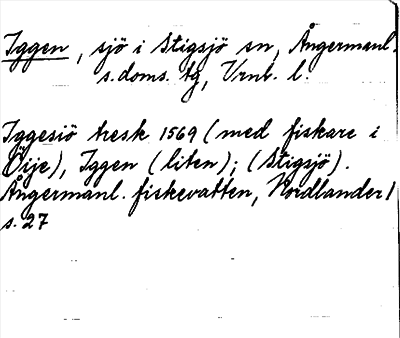 Iggen, sjö i Stigsjö sn, Ångermanl.
s.doms. tg, Vrnl. l.
Iggesiö tresk 1569 (med fiskare i
Öije), Iggen (liten); (Stigsjö).
Ångermanl. fiskevatten, Nordlander 1
s. 27